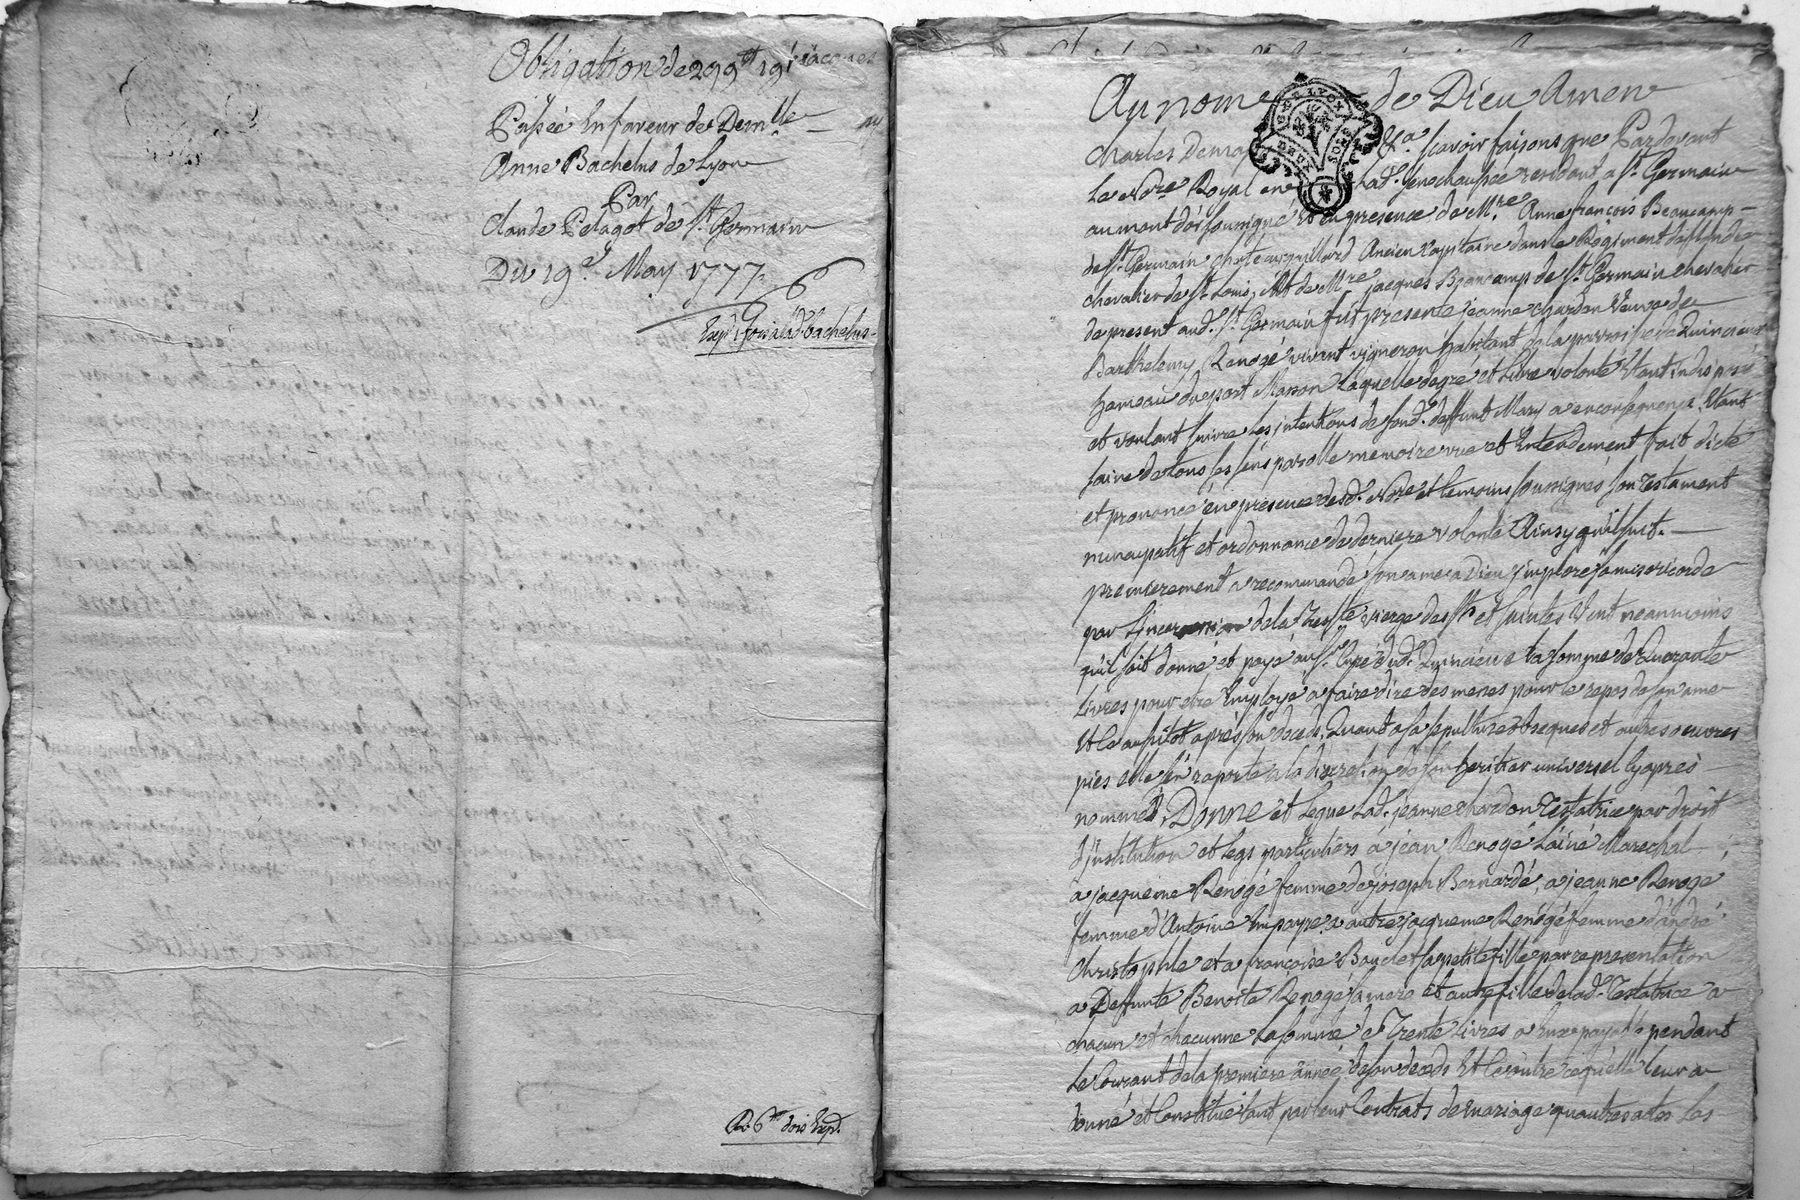 Obligation de 299lt 19s
Passée En faveur de Demlle
Anne Bachelus de Lyon
Par
Claude Pelagot de St. Germain
Du 19e May 1777
Exp. Bachelus
Exp.
Au nom de Dieu Amen
Charles &a scavoir faisons que Pardevant
Le Nore Royal en residant a St. Germain
au mont d'or soussigné Et en presence de Mre Anne françois Beaucamp
de St. Germain Ancien Capitaine dans le Regiment
chevalier de St. Louis, de Mre jacques Beaucamp de St. Germain chevalier
de present aud. St. Germain fut presente jeanne chardon Veuve de
Barthelemy Renogé vivant vigneron habitant de la parroisse de Quincieux
hameau du port Masson Laquelle de gré et libre volonté Etant
et voulant suivre les intentions de son d. deffunt Mary a en consequence Etant
saine de tous ses sens parolle memoire vue et Entendement fait dicté
et prononcé en presence desd. Nore et temoins soussignés son Testament
nuncupatif et ordonnance de derniere volonté Ainsy qu'il suit.
premierement a recommandé son ame a Dieu, imploré sa misericorde
par L' de la tres Ste vierge des Sts et saintes Veut neanmoins
qu'il soit donné et payé au Sr. Curé dud. Quincieux la somme de Quarante
Livres pour etre Employé a faire dire des messes pour le repos de son ame
Et ce aussitot après son deceds. Quant a sa sepulture obseques et autres oeuvres
pies elle s'en raporte a la discretion de son heritier universel cy après
nommé. Donne et legue lad. jeanne chardon Testatrice par droit
d'institution et legs particuliers à jean Renogé L'ainé Marechal
a jacqueme Renogé femme de joseph Bernardé, a jeanne Renogé
femme d'Antoine a autre jacqueme Renogé femme d'andré
Christophle et a françoise Baudet sa petite fille par representation
a Defunte Benoite Renogé sa mere Et autre fille de lad. Testatrice a
chacun et chacunne La somme de Trente livres a Eux payable pendant
Le Courant de la premiere année de son deceds Et Ce outre ce qu'elle leur a
donné et Constitué tant par leur Contrats de mariage qu'autres actes les